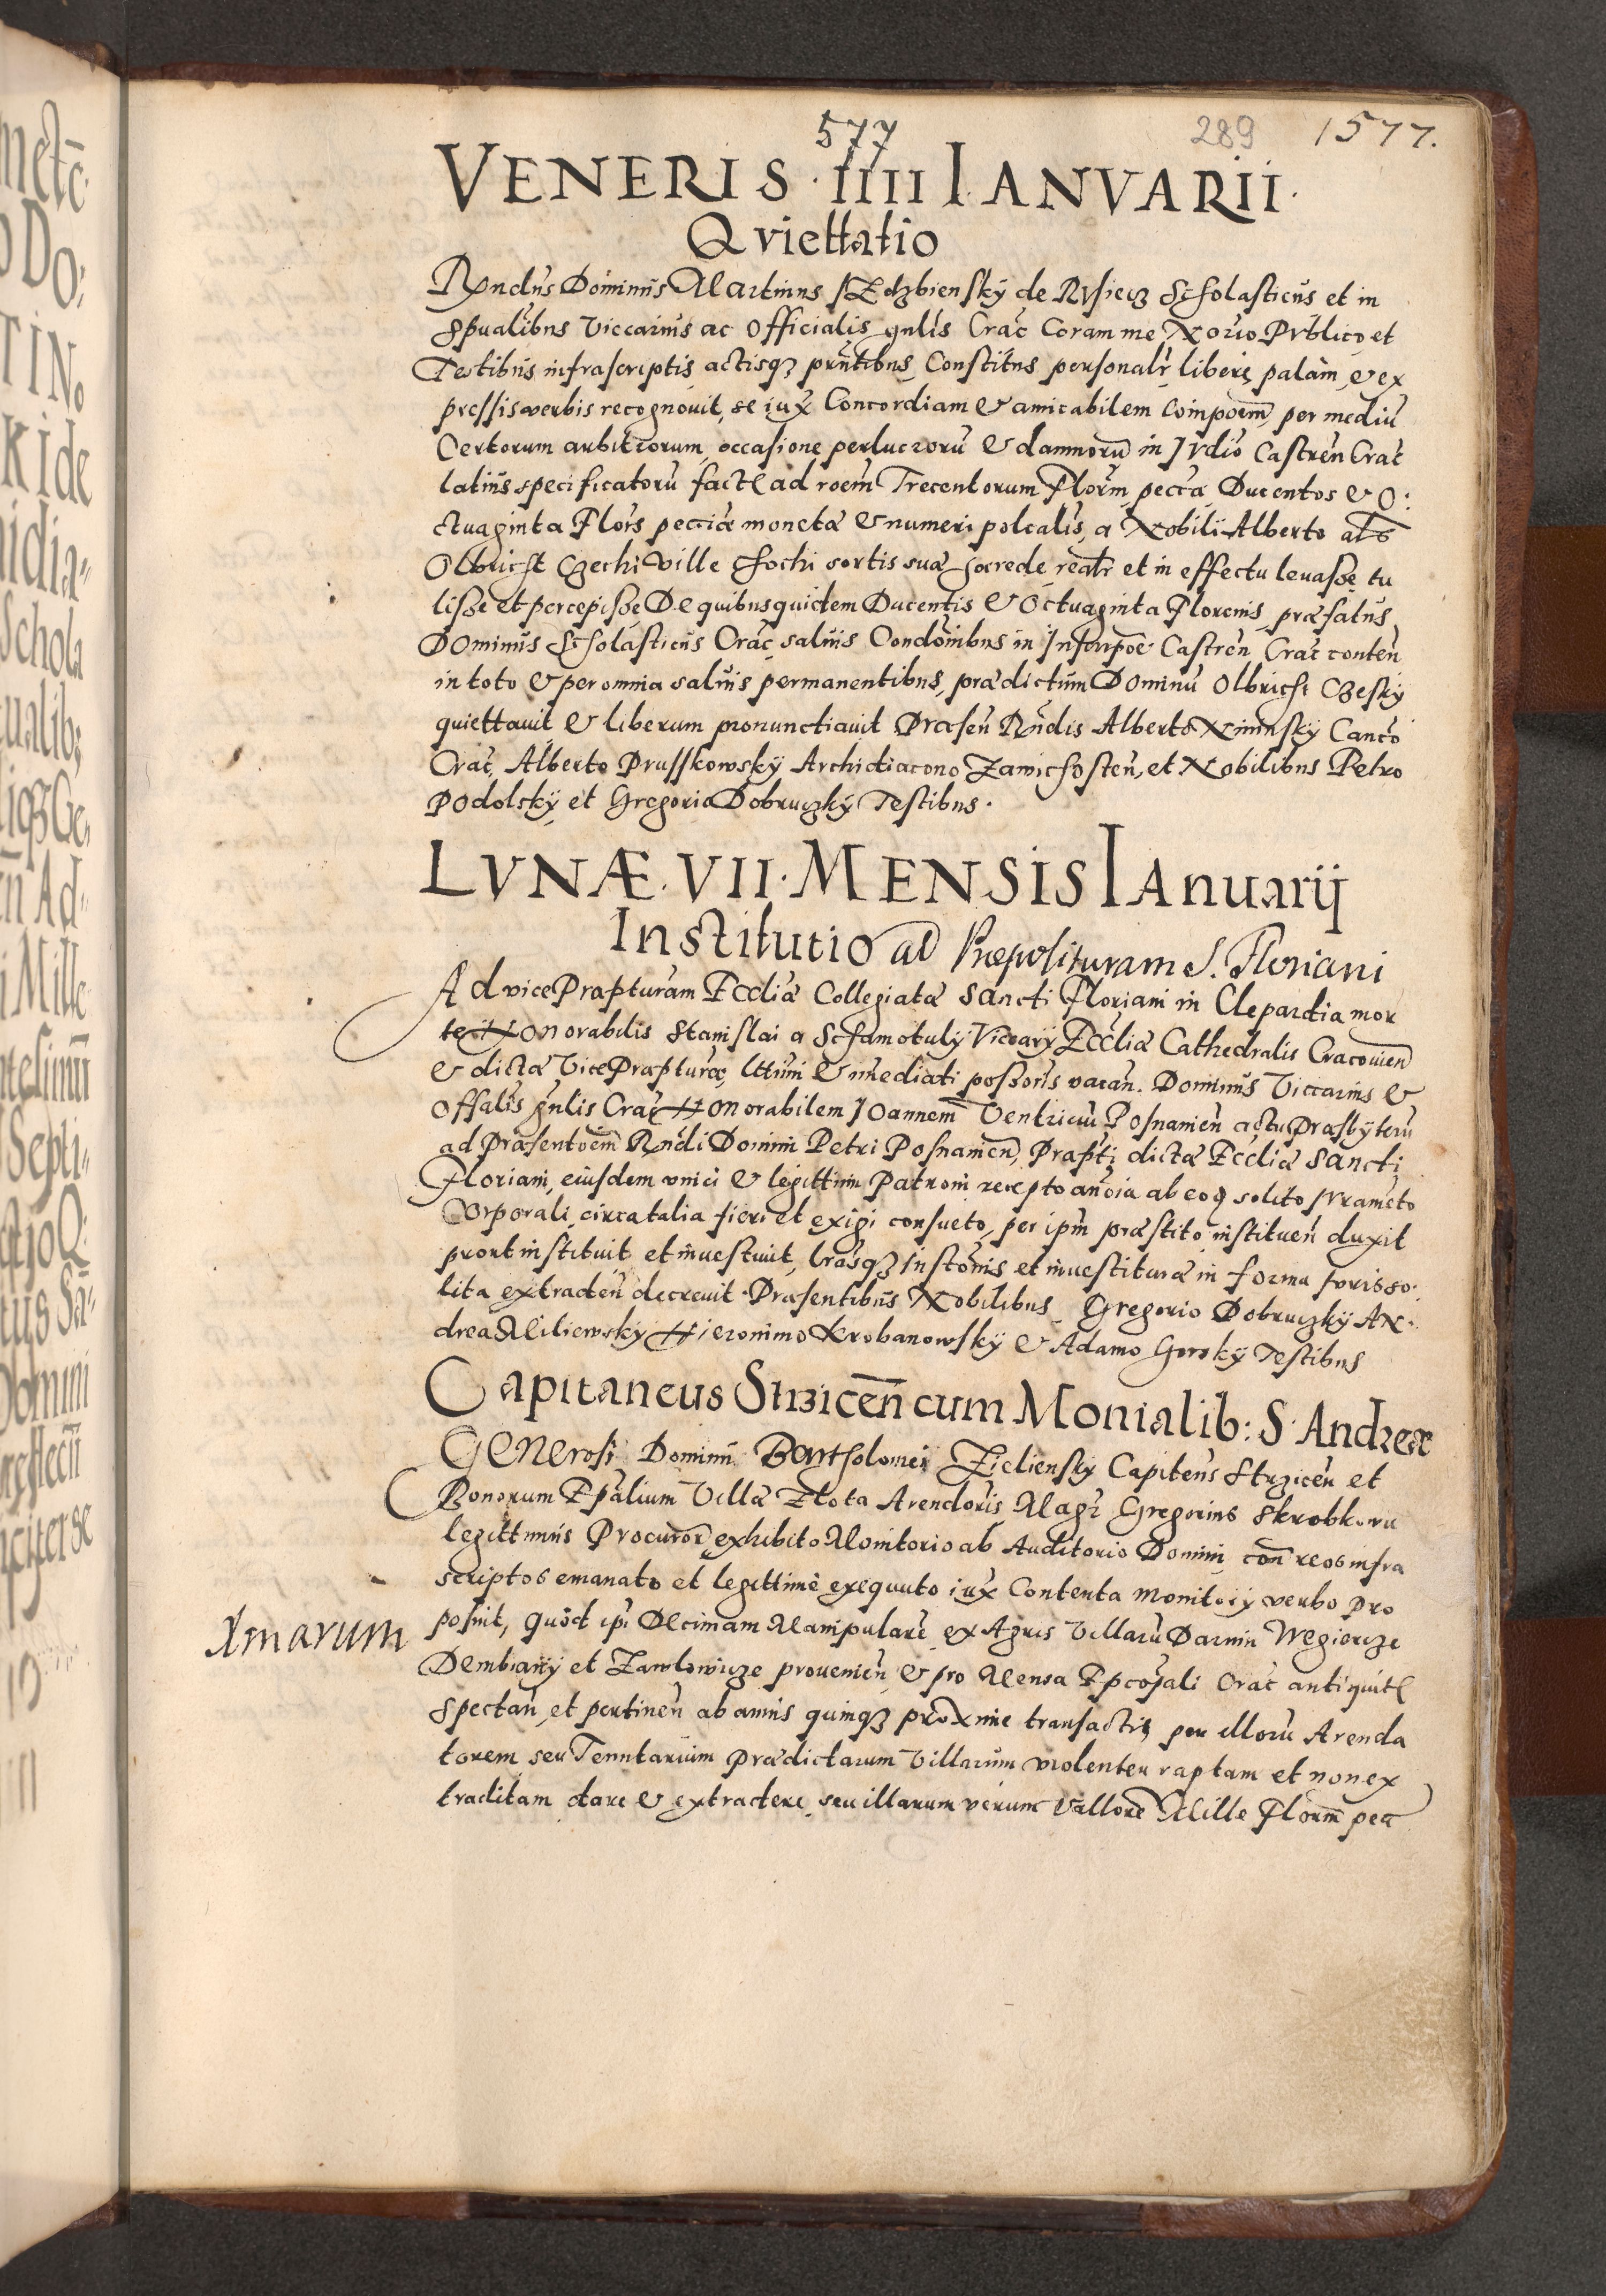 577
289 1577.
VENERIS · IIII IANVARII ·
Qviettatio
Ryndūs Dominūs Martinus Izdzbiensky de Rusiecz Scholasticūs et in
Spualibus Viccarius ac Officialis gnlis Crac Coram me Notrio Pvblico et
Testibūs infrascriptis actisqȝ prntibus Constitus personalr libere palam & ex
pressis verbis recognouit, se iux Concordiam & amicabilem Compoem per mediū
Certorum arbitrorum, occasione perlucrorū & damnorū in Jvdio Castren Crac
latiūs specificatorū fact ad roem Trecentorum Florm pecca Ducentos & O:
ctuaginta Flors peccia monetæ & numeri polcalis, a Nobili Alberto als
Olbricht Czechi Ville Chochi sortis suæ hærede realr et in effectu leuasse tu
lisse et percepisse De quibus quidem Ducentis & Octuaginta Florenis præfatus
Dominūs Scholasticūs Crac saluis Condoibus in Inscrpoe Castren Crac conten
in toto & per omnia saluis permanentibus, prædictum Dominū Olbricht Czesky
quiettauit & liberum pronunctiauit Præsen Rndis Alberto Niminsky Canco
Crac, Alberto Prusskowsky Archidiacono Zawichosten, et Nobilibus Petro
Podolsky et Gregorio Dobruczky Testibus.
LVNÆ · VII · MENSIS IAnuarij
Institutio ad Præposituram S. Floriani
Ad vice Præpturam Ecclīæ Collegiatæ Sancti Floriani in Clepardia mor
te Honorabilis Stanislai a Schamotuly Viccarij Ecclīæ Cathedralis Cracouien
& dictæ Vice Præpturæ, lttimi & imediati possoris vacan. Dominūs Viccarius &
Offalis gnlis Crac Honorabilem Joannem Ventricū Posnanien actu Præsbyterū
ad Præsentoem Rndi Domini Petri Posnanien, Præpti dictæ Ecclīæ Sancti
Floriani, eiusdem vnici & legittimi Patroni recepto an oia ab eoq solito Jvramēto
Corporali circa talia fieri et exigi consueto, per ipm præstito instituen duxit
prout instituit et inuestiuit, lrasqȝ Instonis et inuestituræ in forma Juris so:
lita extraden decreuit. Præsentibūs Nobilibus Gregorio Dobruczky An:
drea Miliewsky Hieronimo Krobanowsky & Adamo Gorsky Testibus
Capitaneus Strzicen cum Monialib: S. Andreæ
Generosi Domini Bartholomei Zieliensky Capitens Strzicen et
Bonorum Epalium Villæ Zlota Arendoris Magr Gregorius Skrobkowi
legittimus Procuror exhibito Monitorio ab Auditorio Domini con reos infra
scriptos emanato et legittimè exequuto iux Contenta Monitorij verbo pro
posuit, quòd ipi Decimam Manipularē ex Agris Villarū Darmin Wegiercze
Xmarum
Dembiany et Zawlowicze prouenien & pro Mensa Epcopali Crac antiquit
spectan et pertinen ab annis quinqȝ proxime transactis per illorū Arenda
torem seu Tenutarium Prædictarum Villarum violenter raptam et non ex
traditam dare & extradere seu illarum verum Vallore Mille Florm pec